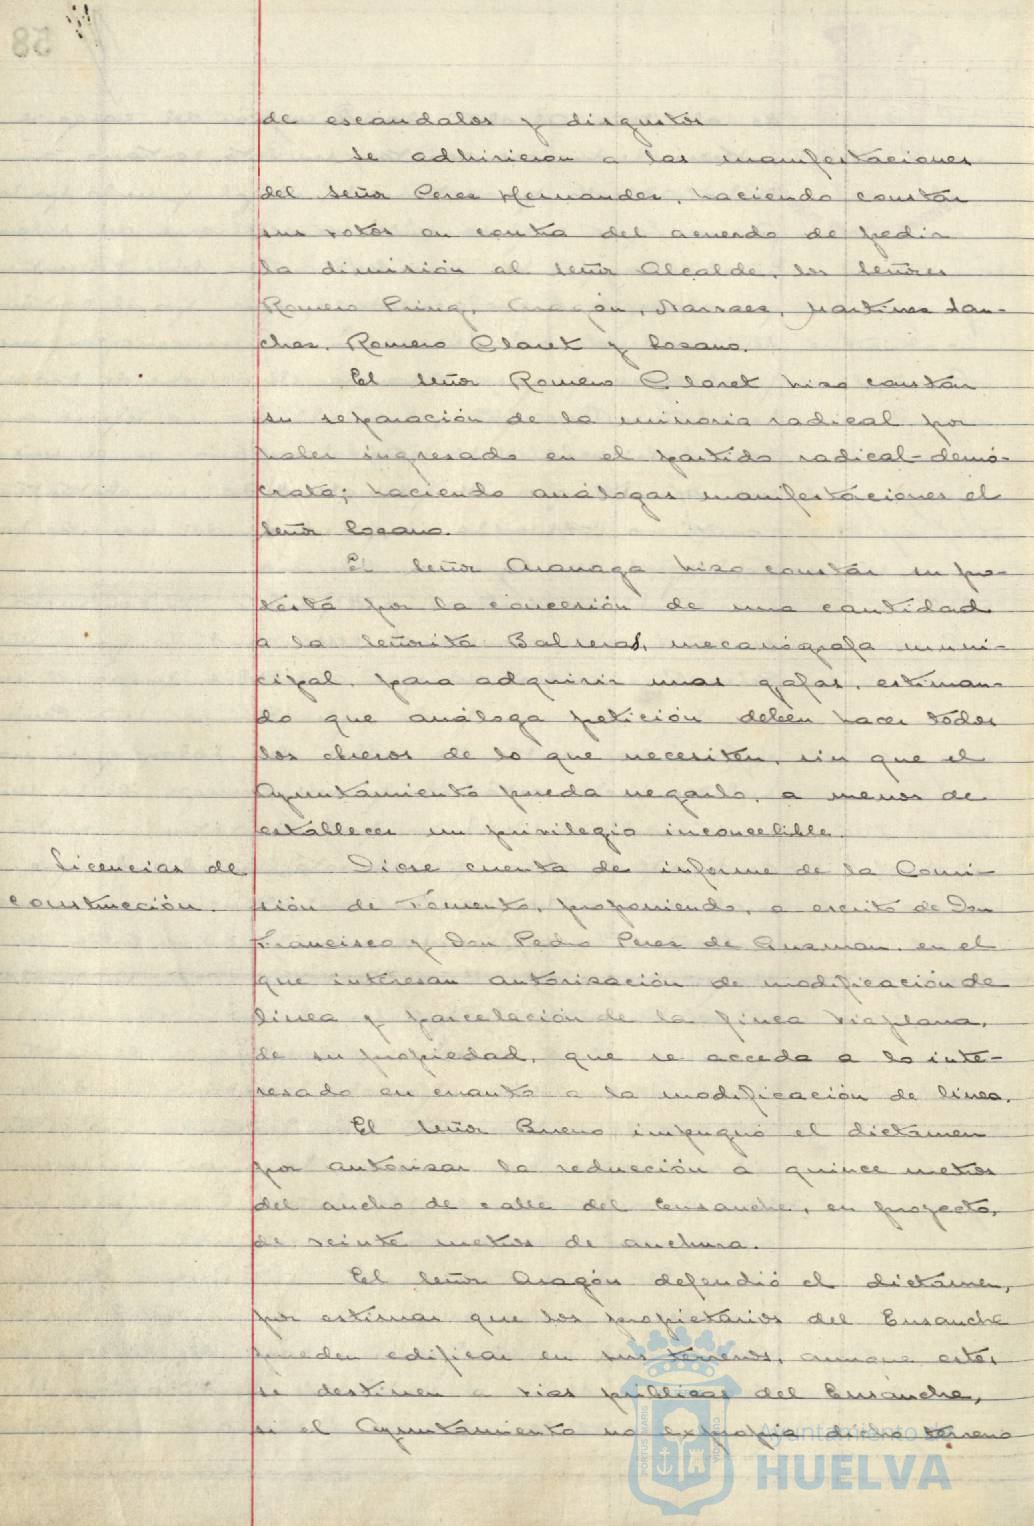 de escandalos y disgustos
Se adhirieron a las manifestaciones
del señor Perez Hernandez, haciendo constar
sus votos en contra del acuerdo de pedir
la dimisión al señor Alcalde, los señores
Romero Aragón, Narvaez, Martinez San-
chez, Romero Claret y Lozano.
El señor Romero Claret hizo constar
su separación de la minoria radical por
haber ingresado en el partido radical-demó-
crata; haciendo análogas manifestaciones el
señor Lozano.
El señor hizo constar su pro-
testa por la concesión de una cantidad
a la señorita mecanógrafa muni-
cipal, para adquirir unas gafas, estiman-
do que análoga petición deben hacer todos
los obreros de lo que necesiten, sin que el
Ayuntamiento pueda negarlo, a menos de
establecer un privilegio inconcebible.
Licencias de
construcción.
Diose cuenta de informe de la Comi-
sión de Fomento, proponiendo, a escrito de Don
Francisco y Don Pedro Perez de Guzman, en el
que interesan autorización de modificación de
linea y parcelación de la finca Viaplana,
de su propiedad, que se acceda a lo inte-
resado en cuanto a la modificación de linea.
El señor Bueno impugnó el dictamen
por autorizar la reducción a quince metros
del ancho de calle del Ensanche, en proyecto,
de veinte metros de anchura.
El señor Aragón defendió el dictamen,
por estimar que los propietarios del Ensanche
pueden edificar en sus terrenos, aunque estos
se destinen a vias públicas del Ensanche,
si el Ayuntamiento no expropia dicho terreno
58
Ayuntamiento de
HUELVA